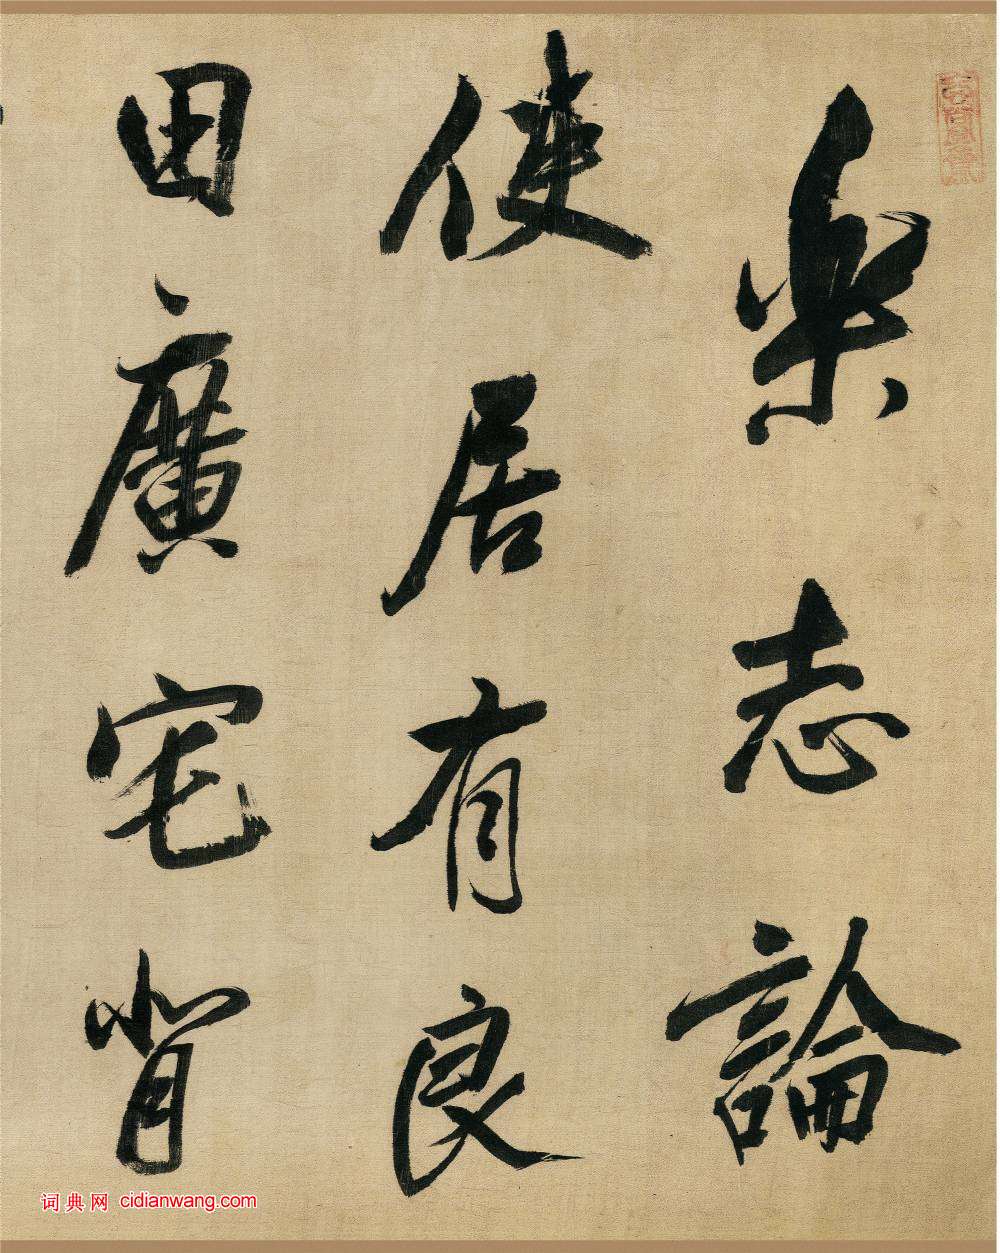 樂志論
使居有良
田廣宅背
词典网 cidianwang.com